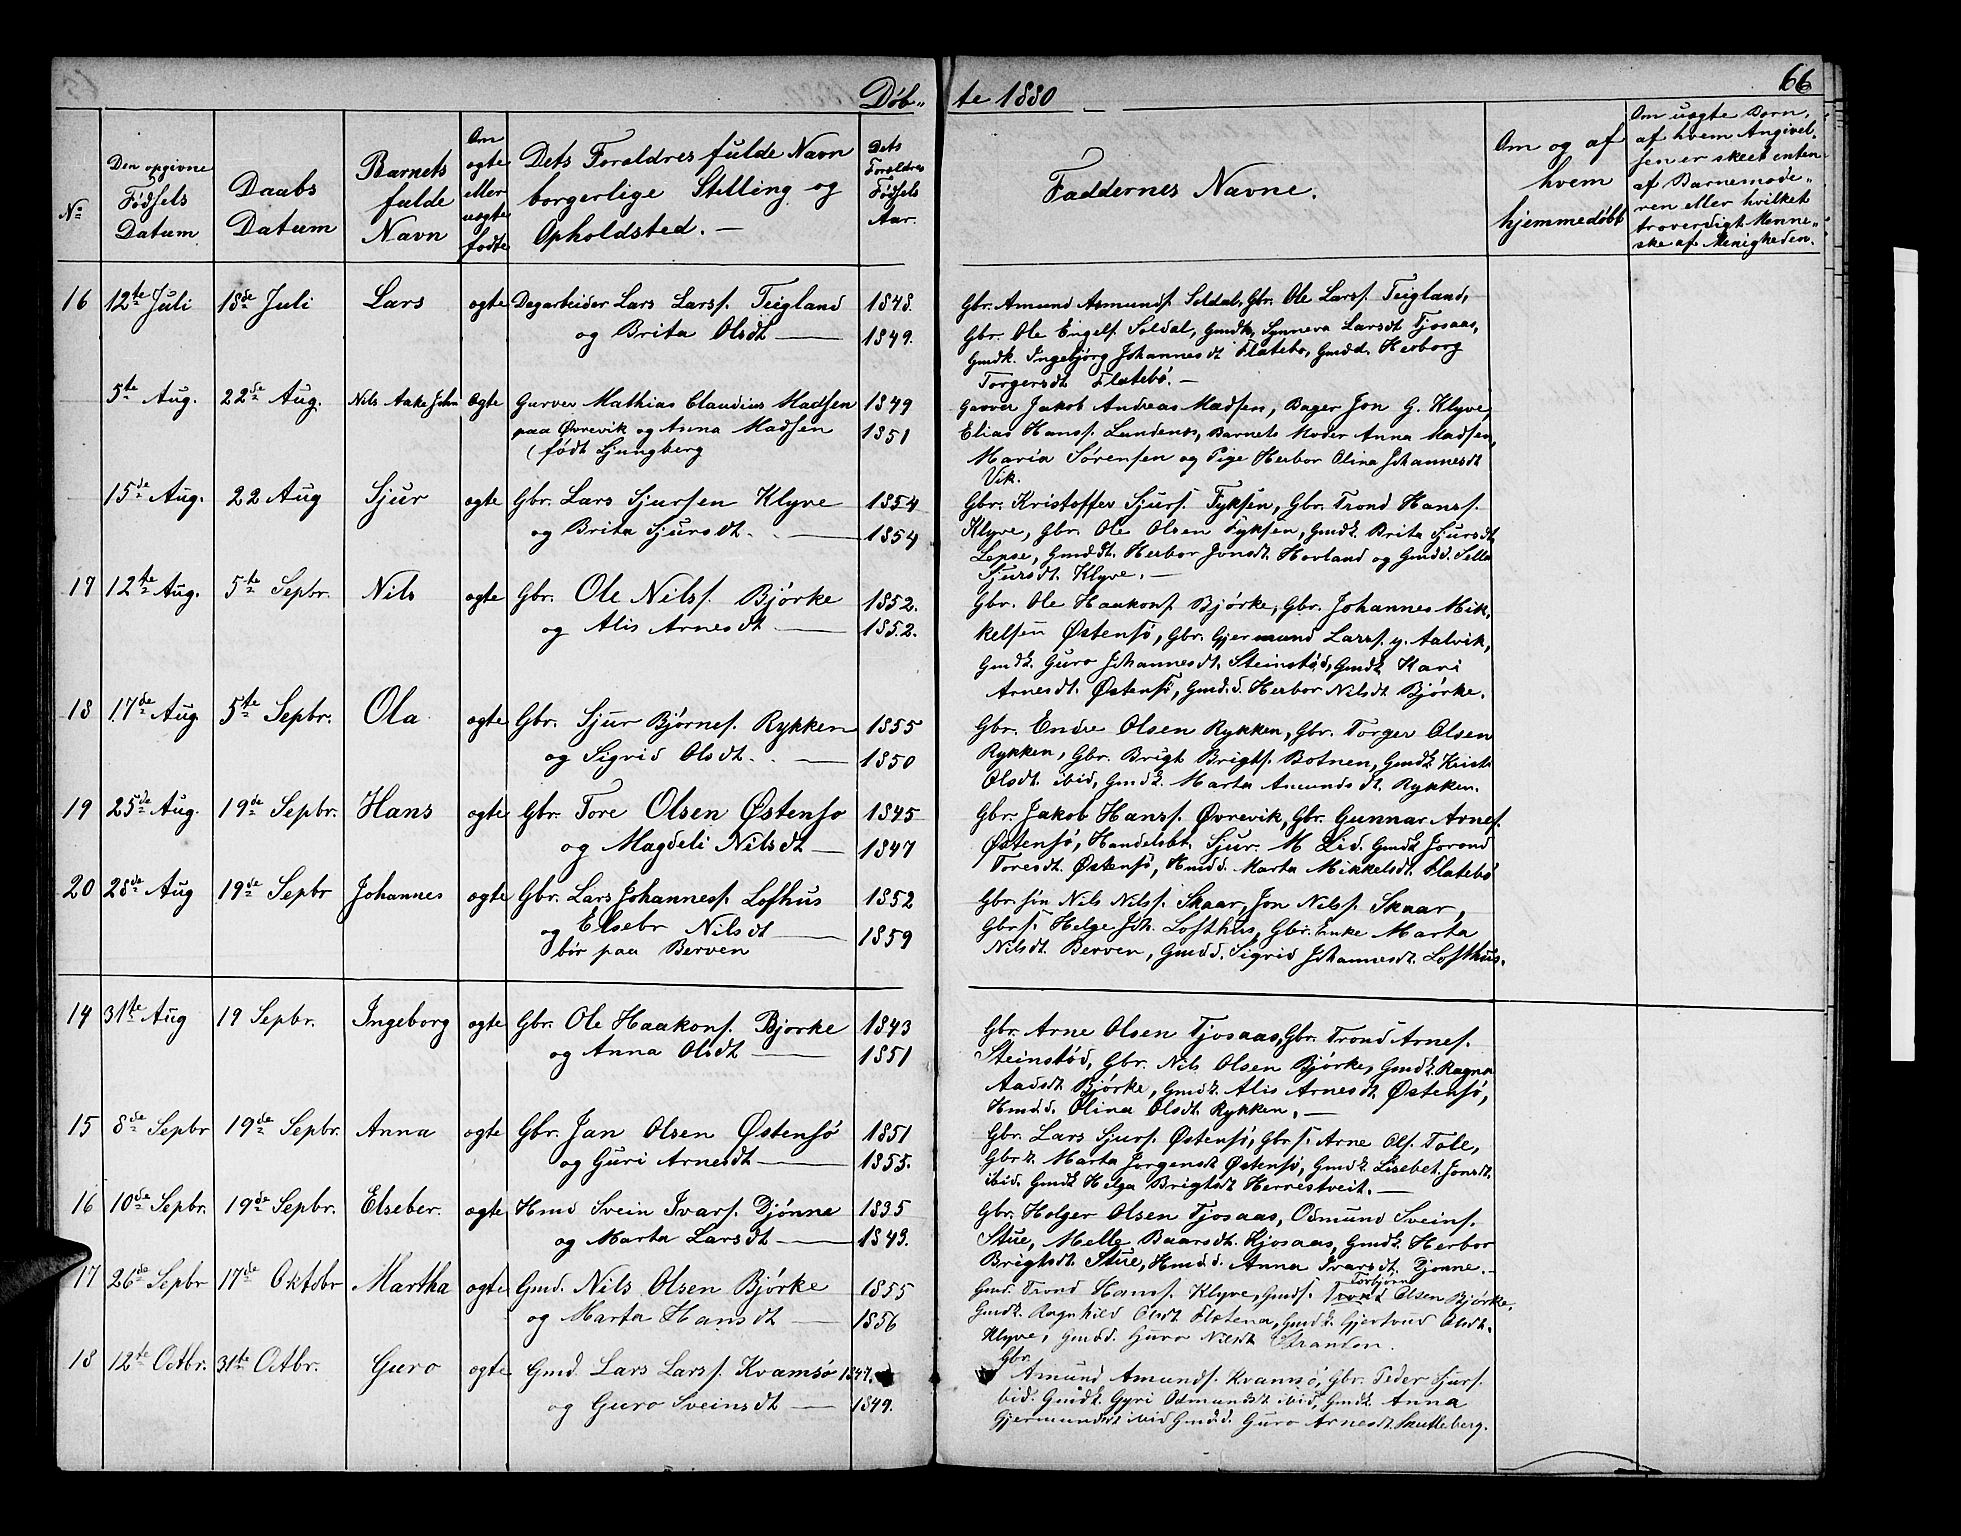 Døb- te 1880 66
No
Den opgivne Fødsels Datum
Daabs Datum
Barnets fulde Navn
Om ægte eller uægte fødte
Dets Forældres fulde Navn borgerlige Stilling og Opholdsted. —
Dets Forældres Fødsels Aar.
Faddernes Navne.
Om og af hvem hjemmedøbt
Om uægte Børn, af hvem Angivel- sen er skeet enten af Barnemode- ren eller hvilket troværdigt Menne- ske af Menigheden.
16 12te Juli 18de Juli Lars ægte Dagarbeider Lars Larss. Teigland 1848. Gbr. Amund Asmunds. Soldal, Gbr. Ole Larss. Teigland,
og Brita Olsdt — 1849. Gbr. Ole Engels. Soldal, Gmdk. Synneva Larsdt Tjosaas,
Gmdk. Ingebjørg Johannesdt Flatebø, Gmdd. Herborg
Torgersdt Flatebø. —
5te Aug. 22de Aug. Nils Aake John Ægte Garver Mathias Claudius Madsen 1849 Garver Jakob Andreas Madsen, Bager Jon G. Klyve,
paa Øvrevik og Anna Madsen 1851 Elias Hanss. Lundenes, Barnets Moder Anna Madsen,
(født Ljungberg Maria Sørensen og Pige Herbor Olina Johannesdt
Vik.
15de Aug. 22 Aug Sjur ægte Gbr. Lars Sjursen Klyve 1854 Gbr. Kristoffer Sjurs. Fyksen, Gbr. Trond Hanss.
og Brita Sjursdt. — 1854 Klyve, Gbr. Ole Olsen Fyksen, Gmdk. Brita Sjursdt
Lepse, Gmddt. Herbor Jonsdt. Hovland og Gmdd. Sella
Sjursdt. Klyve. —
17 12te Aug. 5te Sepbr. Nils ægte Gbr. Ole Nilss. Bjørke 1852. Gbr. Ole Haakons. Bjørke, Gbr. Johannes Mik-
og Alis Arnesdt — 1852. kelsen Østensø, Gbr. Gjermund Larss. y. Aalvik,
Gmdk. Guro Johannesdt. Steinstød, Gmdk Kari
Arnesdt. Østensø, Gmd.d. Herbor Nilsdt Bjørke.
18 17de Aug. 5te Sepbr. Ola ægte Gbr. Sjur Bjørnes. Rykken 1855 Gbr. Endre Olsen Rykken, Gbr. Torger Olsen
og Sigrid Olsdt. — 1850 Rykken, Gbr. Brigt Brigts. Botnen, Gmdk Kristi
Olsdt. ibid, Gmdk. Marta Amundsdt. Rykken.
19 25de Aug. 19de Sepbr. Hans ægte Gbr. Tore Olsen Østensø 1845 Gbr. Jakob Hanss. Øvrevik, Gbr. Gunnar Arnes.
og Magdeli Nilsdt — 1847 Østensø, Handelsbt. Sjur. M Lid. Gmdk Jorond
Toresdt. Østensø, Hmdd. Marta Mikkelsdt. Flatebø
20 28de Aug 19de Sepbr Johannes ægte Gbr. Lars Johanness. Lofhus 1852 Gbr. søn Nils Nilss. Skaar, Jon Nilss. Skaar,
og Elsebr Nilsdt — 1859 Gbr s. Helge Joh. Lofthus, Gbr. Enke Marta
bor paa Berven Nilsdt. Berven, Gmdd. Sigrid Johannesdt. Lofthus.
14 31te Aug 19 Sepbr. Ingeborg ægte Gbr. Ole Haakons. Bjørke 1843 Gbr. Arne Olsen Tjosaas, Gbr. Trond Arnes.
og Anna Olsdt — 1851 Steinstød, Gbr. Nils Olsen Bjørke, Gmdk. Ragna
Aadsdt Bjørke, Gmdk. Alis Arnesdt Østensø,
Hmdd. Olina Olsdt. Rykken. —
15 8de Sepbr 19de Sepbr. Anna ægte Gbr. Jan Olsen Østensø 1851 Gbr. Lars Sjurs. Østensø, Gbr s. Arne Ols. Tole,
og Guri Arnesdt — 1855. Gbr k. Marta Jørgensdt Østensø, Gmdk. Lisebet. Jonsdt.
ibid. Gmdk Helga Brigtsdt Herrestveit. —
16 10de Sepbr. 19de Sepbr. Elseber. ægte Hmd Svein Ivars. Djønne 1835 Gbr. Holger Olsen Tjosaas, Odmund Sveins.
og Marta Larsdt — 1843. Stue, Melle Baarsdt. Kjosaas, Gmdk. Herbor
Brigtsdt. Stue, Hmd.d. Anna Ivarsdt. Djønne. —
17 26de Sepbr 17de Oktobr Martha ægte Gmd. Nils Olsen Bjørke 1855 Gmd. Trond Hanss. Klyve, Gmds. Trond Torbjørn Olsen Bjørke,
og Marta Hansdt — 1856 Gmdk. Ragnhild Olsdt Flatena, Gmd.d. Gjertrud Olsdt.
Klyve, Gmdd. Guro Nilsdt Stranden.
18 12te Octbr. 31te Octbr. Guro ægte Gmd. Lars Larss. Kvamsø 1847. Gbr. Amund Amunds. Kvamsø, Gbr. Peder Sjurs.
og Guro Sveinsdt — 1849. ibid. Gmdk. Gyri Odmundsdt ibid, Gmdk. Anna
Gjermundsdt ibid Gmd.d. Guro Arnesdt. Skutleberg.